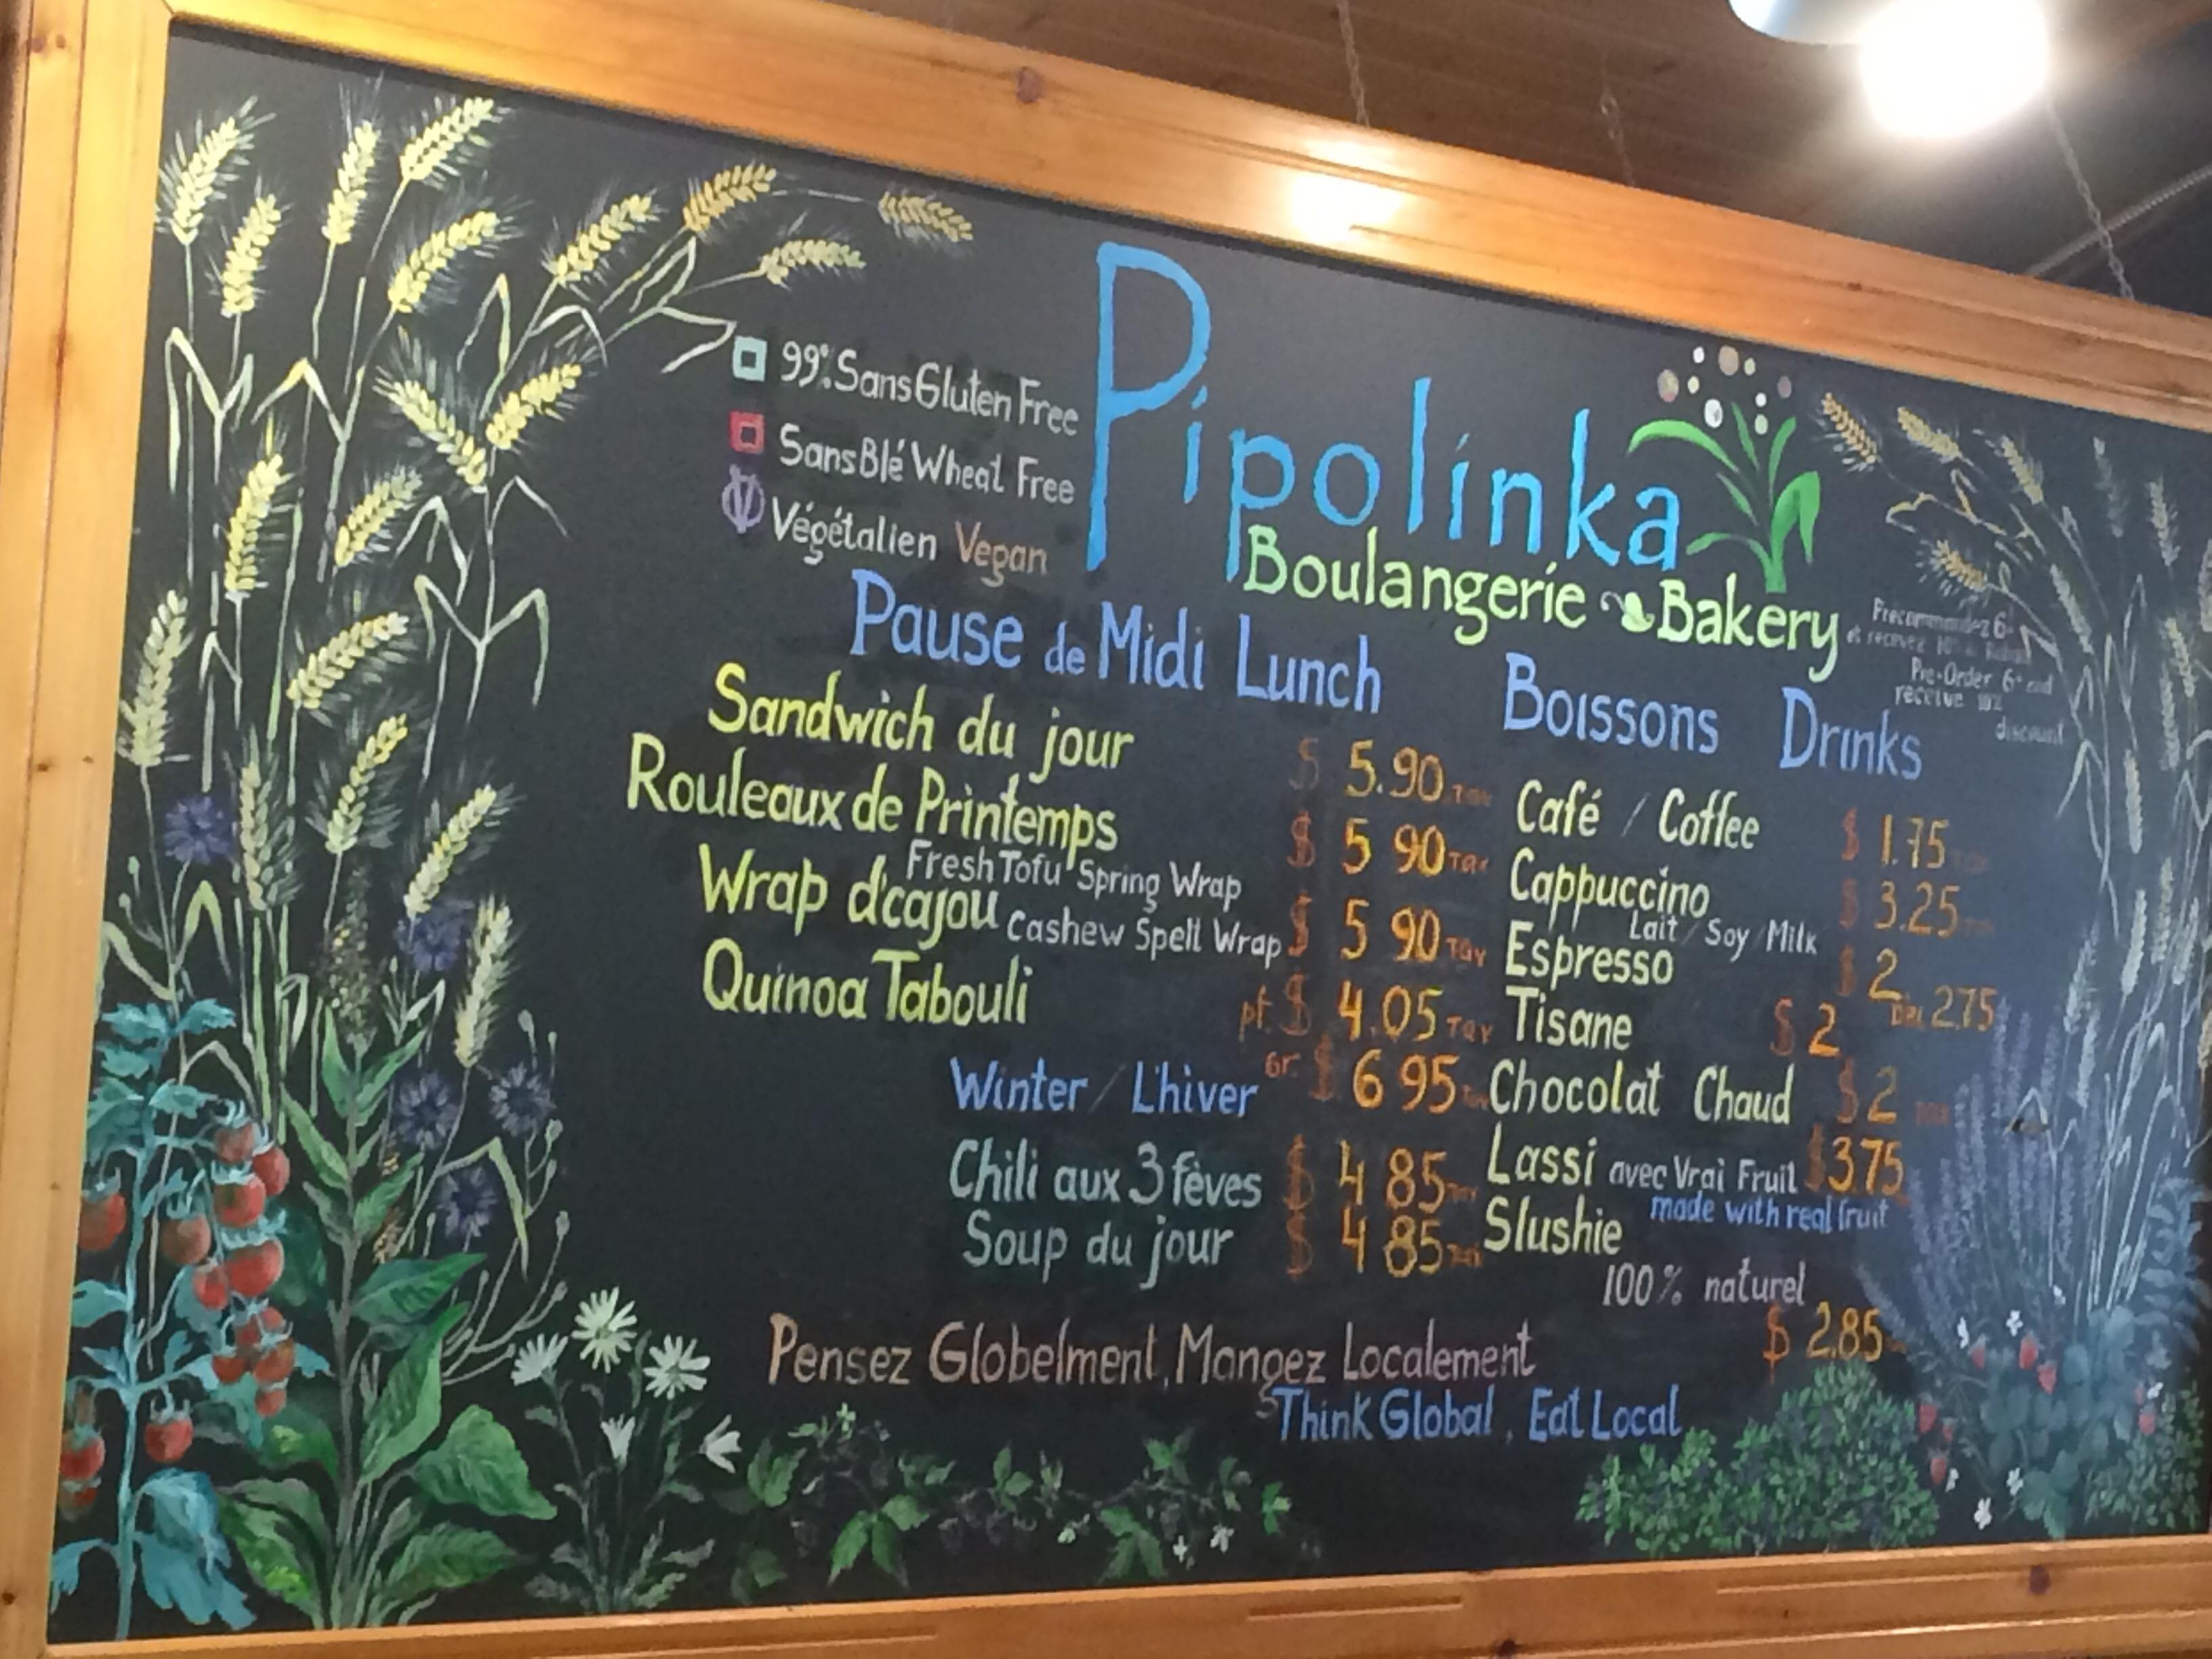 Pipolinka
Boulangerie Bakery
99% Sans Gluten Free
Sans Blé Wheat Free
Végétalien Vegan
Precommandez 6+
et recevez 10%
Pre-Order 6+ and
receive 10%
discount
Pause de Midi Lunch
Sandwich du jour $ 5.90 Tax
Rouleaux de Printemps $ 5 90 Tax
Fresh Tofu Spring Wrap
Wrap d'cajou Cashew Spelt Wrap $ 5 90 Tax
Quinoa Tabouli pt. $ 4.05 Tax
gr. $ 6 95 Tax
Winter / L'hiver
Chili aux 3 fèves $ 4 85 Tax
Soup du jour $ 4 85 Tax
Boissons Drinks
Café / Coffee $ 1.75
Cappuccino $ 3.25
Lait / Soy / Milk
Espresso $ 2
Dbl 2.75
Tisane $ 2
Chocolat Chaud $ 2
Lassi avec Vrai Fruit $ 3 75
made with real fruit
Slushie
100% naturel
$ 2.85
Pensez Globelment, Mangez Localement
Think Global, Eat Local